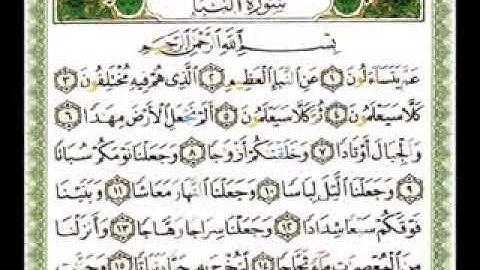 سورة النبإ
بِسْمِ اللَّهِ الرَّحْمَٰنِ الرَّحِيمِ
عَمَّ يَتَسَاءَلُونَ ١ عَنِ النَّبَإِ الْعَظِيمِ ٢ الَّذِي هُمْ فِيهِ مُخْتَلِفُونَ ٣
كَلَّا سَيَعْلَمُونَ ٤ ثُمَّ كَلَّا سَيَعْلَمُونَ ٥ أَلَمْ نَجْعَلِ الْأَرْضَ مِهَادًا ٦
وَالْجِبَالَ أَوْتَادًا ٧ وَخَلَقْنَاكُمْ أَزْوَاجًا ٨ وَجَعَلْنَا نَوْمَكُمْ سُبَاتًا
٩ وَجَعَلْنَا اللَّيْلَ لِبَاسًا ١٠ وَجَعَلْنَا النَّهَارَ مَعَاشًا ١١ وَبَنَيْنَا
فَوْقَكُمْ سَبْعًا شِدَادًا ١٢ وَجَعَلْنَا سِرَاجًا وَهَّاجًا ١٣ وَأَنزَلْنَا
مِنَ الْمُعْصِرَاتِ مَاءً ثَجَّاجًا ١٤ لِّنُخْرِجَ بِهِ حَبًّا وَنَبَاتًا ١٥ وَجَنَّاتٍ